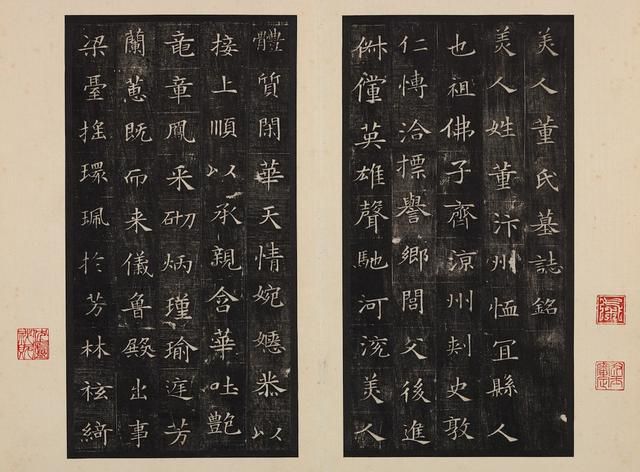 美人董氏墓誌銘
美人姓董汴州恤宜縣人
也祖佛子齊涼州刺史敦
仁愽洽摽譽鄉閭父後進
俶儻英雄聲馳河渷美人
體質閑華天情婉嫕恭以
接上順以承親含華吐艷
竜章鳳采砌炳瑾瑜庭芳
蘭蕙既而来儀魯殿出事
梁臺搖環珮於芳林袨綺